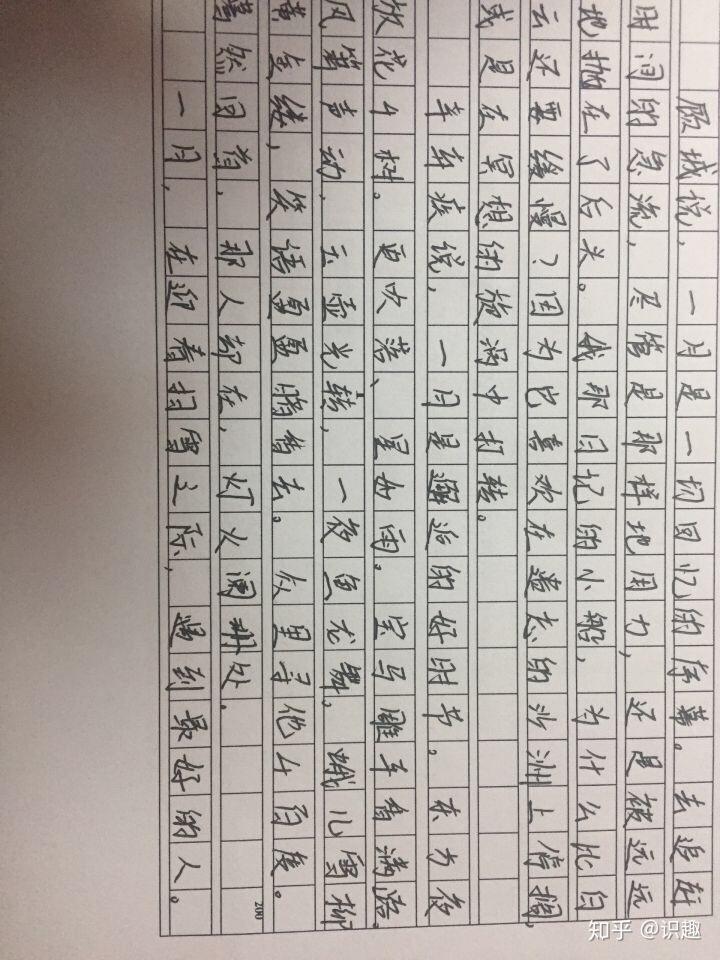 顾城说，一月是一切回忆的序幕。去追赶
时间的急流，尽管是那样地用力，还是被远远
地抛在了后头。我那日记的小船，为什么比白
云还要缓慢？因为它喜欢在遗忘的沙洲上停搁，
或是在冥想的旋涡中打转。
辛弃疾说，一月是邂逅的好时节。东方夜
放花千树。更吹落、星如雨。宝马雕车香满路。
风箫声动，玉壶光转，一夜鱼龙舞。蛾儿雪柳
黄金缕，笑语盈盈暗香去。众里寻他千百度。
蓦然回首，那人却在，灯火阑珊处。
200
一月，在迎着扫雪之际，遇到最好的人。
知乎 @识趣